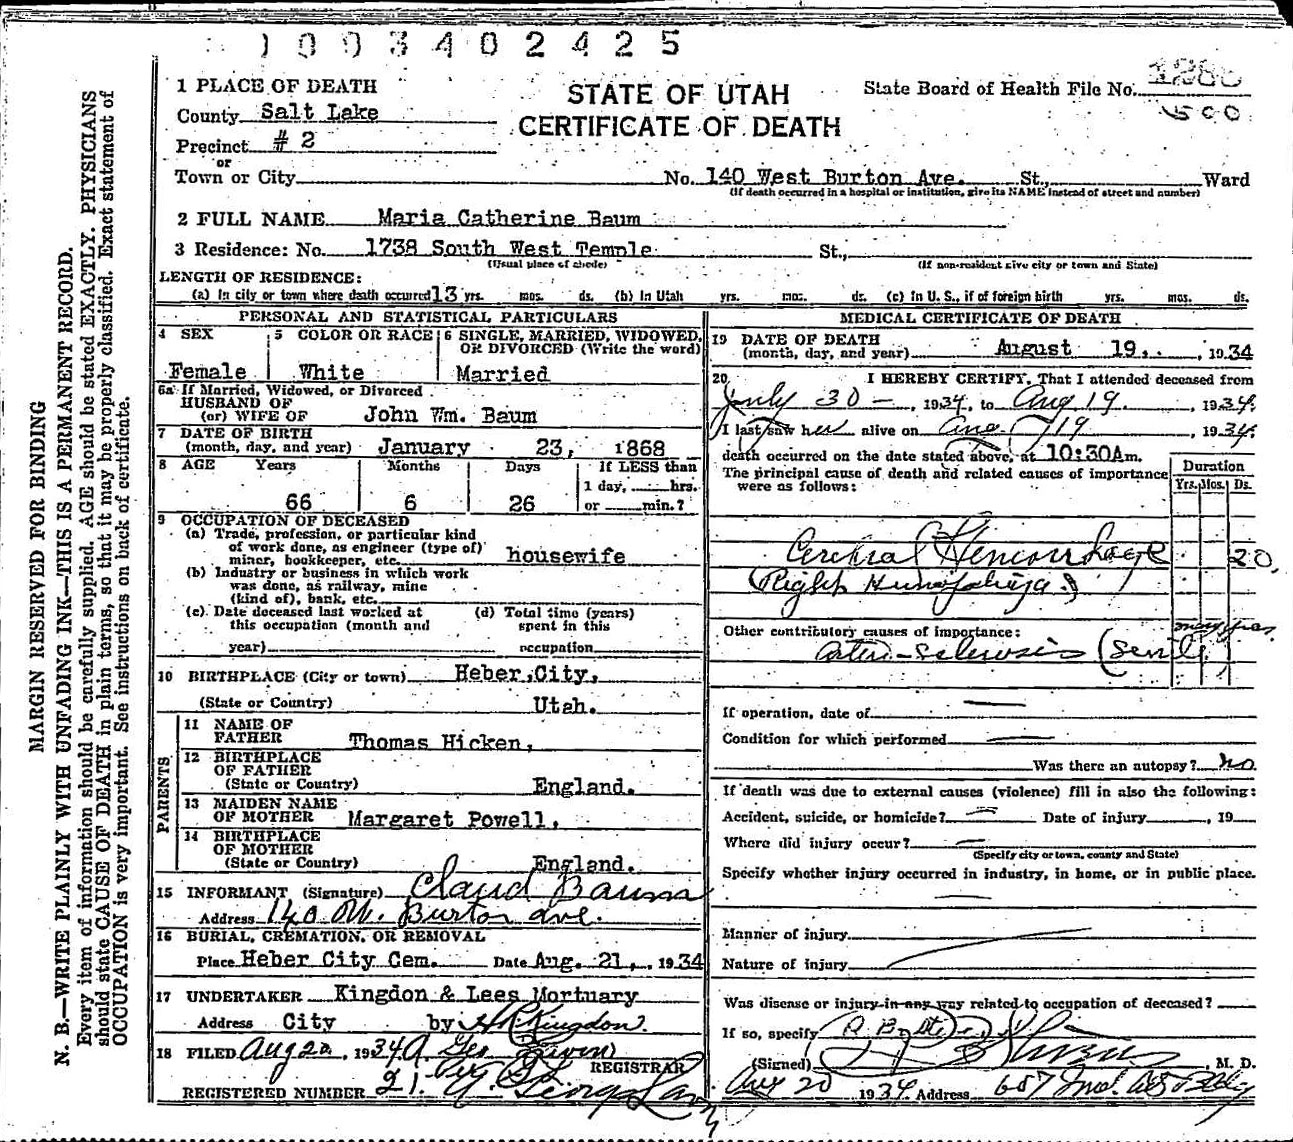 1003402425
1 PLACE OF DEATH
County Salt Lake
Precinct # 2
or
Town or City
STATE OF UTAH
CERTIFICATE OF DEATH
State Board of Health File No.
500
No. 140 West Burton Ave. St., Ward
(If death occurred in a hospital or institution, give its NAME instead of street and number)
2 FULL NAME Maria Catherine Baum
3 Residence: No. 1738 South West Temple St.,
(Usual place of abode) (If non-resident give city or town and State)
LENGTH OF RESIDENCE:
(a) In city or town where death occurred 13 yrs. mos. ds. (b) In Utah yrs. mos. ds. (c) In U. S., if of foreign birth yrs. mos. ds.
PERSONAL AND STATISTICAL PARTICULARS
4 SEX 5 COLOR OR RACE 6 SINGLE, MARRIED, WIDOWED, OR DIVORCED (Write the word)
Female White Married
6a If Married, Widowed, or Divorced
HUSBAND OF
(or) WIFE OF John Wm. Baum
7 DATE OF BIRTH
(month, day, and year) January 23, 1868
8 AGE Years Months Days If LESS than
1 day, hrs.
66 6 26 or min.?
9 OCCUPATION OF DECEASED
(a) Trade, profession, or particular kind
of work done, as engineer (type of)
miner, bookkeeper, etc. housewife
(b) Industry or business in which work
was done, as railway, mine
(kind of), bank, etc.
(c) Date deceased last worked at (d) Total time (years)
this occupation (month and spent in this
year) occupation
10 BIRTHPLACE (City or town) Heber City,
(State or Country) Utah.
PARENTS
11 NAME OF
FATHER Thomas Hicken,
12 BIRTHPLACE
OF FATHER
(State or Country) England.
13 MAIDEN NAME
OF MOTHER Margaret Powell,
14 BIRTHPLACE
OF MOTHER
(State or Country) England.
15 INFORMANT (Signature) Claud Baum
Address 140 W. Burton Ave.
16 BURIAL, CREMATION, OR REMOVAL
Place Heber City Cem. Date Aug. 21, 1934
17 UNDERTAKER Kingdon & Lees Mortuary
Address City by Kingdon.
18 FILED Aug 20, 1934
REGISTRAR
REGISTERED NUMBER 21.
MEDICAL CERTIFICATE OF DEATH
19 DATE OF DEATH
(month, day, and year) August 19,. , 1934
20 I HEREBY CERTIFY, That I attended deceased from
July 30 - , 1934, to Aug 19 , 1934.
I last saw her alive on Aug 19 , 1934.
death occurred on the date stated above, at 10:30Am.
The principal cause of death and related causes of importance
were as follows:
Duration
Yrs. Mos. Ds.
Cerebral Hemorrhage 20.
(Right Hemiplegia.)
Other contributory causes of importance: many yrs.
Arterio-Sclerosis (Senile)
If operation, date of —
Condition for which performed —
Was there an autopsy? No
If death was due to external causes (violence) fill in also the following:
Accident, suicide, or homicide? — Date of injury , 19
Where did injury occur? —
(Specify city or town, county and State)
Specify whether injury occurred in industry, in home, or in public place.
—
Manner of injury
Nature of injury
Was disease or injury in any way related to occupation of deceased?
If so, specify
(Signed) , M. D.
Aug 20 1934 Address
MARGIN RESERVED FOR BINDING
N. B.—WRITE PLAINLY WITH UNFADING INK—THIS IS A PERMANENT RECORD.
Every item of information should be carefully supplied. AGE should be stated EXACTLY. PHYSICIANS
should state CAUSE OF DEATH in plain terms, so that it may be properly classified. Exact statement of
OCCUPATION is very important. See instructions on back of certificate.